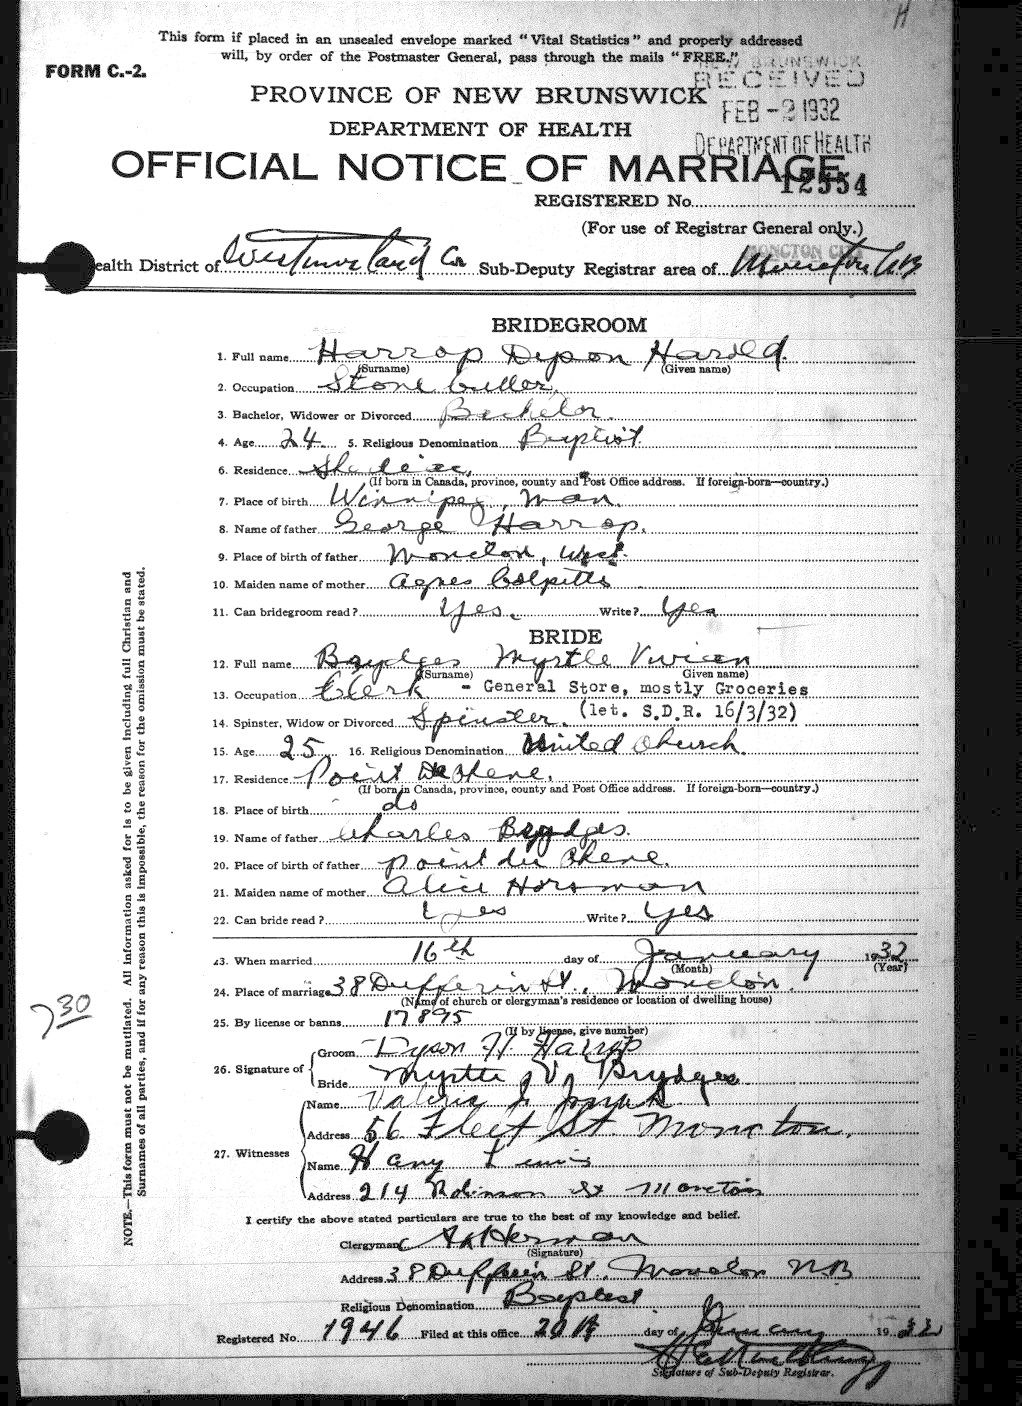 H
This form if placed in an unsealed envelope marked "Vital Statistics" and properly addressed
will, by order of the Postmaster General, pass through the mails "FREE."
FORM C.-2.
NEW BRUNSWICK
RECEIVED
FEB -2 1932
DEPARTMENT OF HEALTH
PROVINCE OF NEW BRUNSWICK
DEPARTMENT OF HEALTH
OFFICIAL NOTICE OF MARRIAGE
12554
REGISTERED No.
(For use of Registrar General only.)
MONCTON CITY
ealth District of Westmorland Co Sub-Deputy Registrar area of Moncton N.B
BRIDEGROOM
1. Full name Harrop Dyson Harold.
(Surname) (Given name)
2. Occupation Stone Cutter.
3. Bachelor, Widower or Divorced Bachelor.
4. Age 24 5. Religious Denomination Baptist
6. Residence Shediac,
(If born in Canada, province, county and Post Office address. If foreign-born—country.)
7. Place of birth Winnipeg, Man.
8. Name of father George Harrop.
9. Place of birth of father Moncton, West.
10. Maiden name of mother Agnes Colpitts
11. Can bridegroom read? Yes. Write? Yes
BRIDE
12. Full name Brydges Myrtle Vivian
(Surname) Given name)
13. Occupation Clerk - General Store, mostly Groceries
14. Spinster, Widow or Divorced Spinster. (let. S.D.R. 16/3/32)
15. Age 25 16. Religious Denomination United Church.
17. Residence Point du Chene.
(If born in Canada, province, county and Post Office address. If foreign-born—country.)
18. Place of birth do
19. Name of father Charles Brydges.
20. Place of birth of father Point du Chene.
21. Maiden name of mother Alice Horsman
22. Can bride read? Yes Write? Yes
23. When married 16th day of January 1932
(Month) (Year)
24. Place of marriage 38 Dufferin St., Moncton.
(Name of church or clergyman's residence or location of dwelling house)
25. By license or banns 17895
(If by license, give number)
26. Signature of Groom Dyson H. Harrop
Bride Myrtle V. Brydges
27. Witnesses Name Valeria J.
Address 56 Fleet St. Moncton.
Name Harry Lewis
Address 214 Robinson St Moncton
I certify the above stated particulars are true to the best of my knowledge and belief.
Clergyman Herman
(Signature)
Address 38 Dufferin St., Moncton N.B
Religious Denomination Baptist
Registered No. 1946 Filed at this office 20th day of January 1932
Signature of Sub-Deputy Registrar.
NOTE.—This form must not be mutilated. All information asked for is to be given including full Christian and
Surnames of all parties, and if for any reason this is impossible, the reason for the omission must be stated.
730